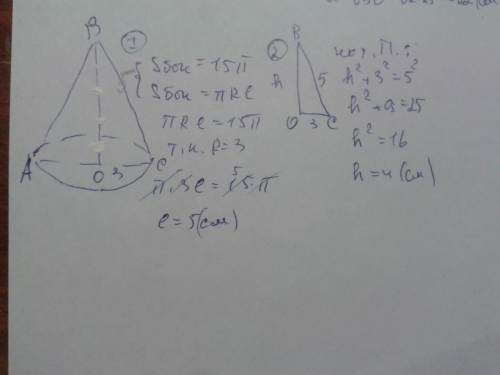 B
①
Sбок = 15π
Sбок = πRl
πRl = 15π
т.к. R = 3
π·3l = 15·π
5
l = 5(см)
A
O
3
C
②
B
h
5
O
3
C
по т. П.:
h² + 3² = 5²
h² + 9 = 25
h² = 16
h = 4 (см)